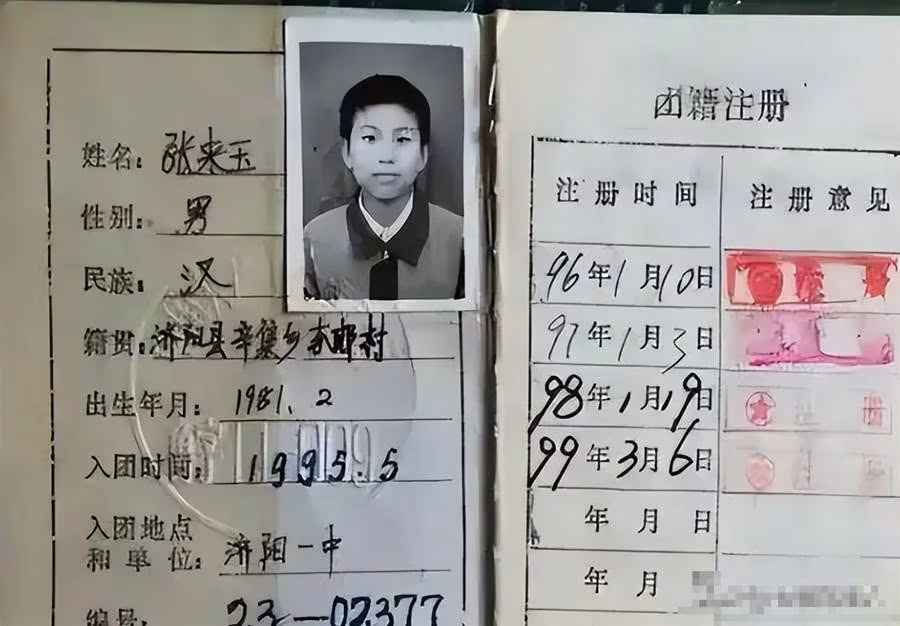 姓名：张来玉
性别：男
民族：汉
籍贯：济阳县辛集乡东郎村
出生年月：1981.2
入团时间：1995.5
入团地点
和单位：济阳一中
编号：23—02377
团籍注册
注册时间 注册意见
96年1月10日
97年1月3日
98年1月19日
99年3月6日
年 月 日
年 月